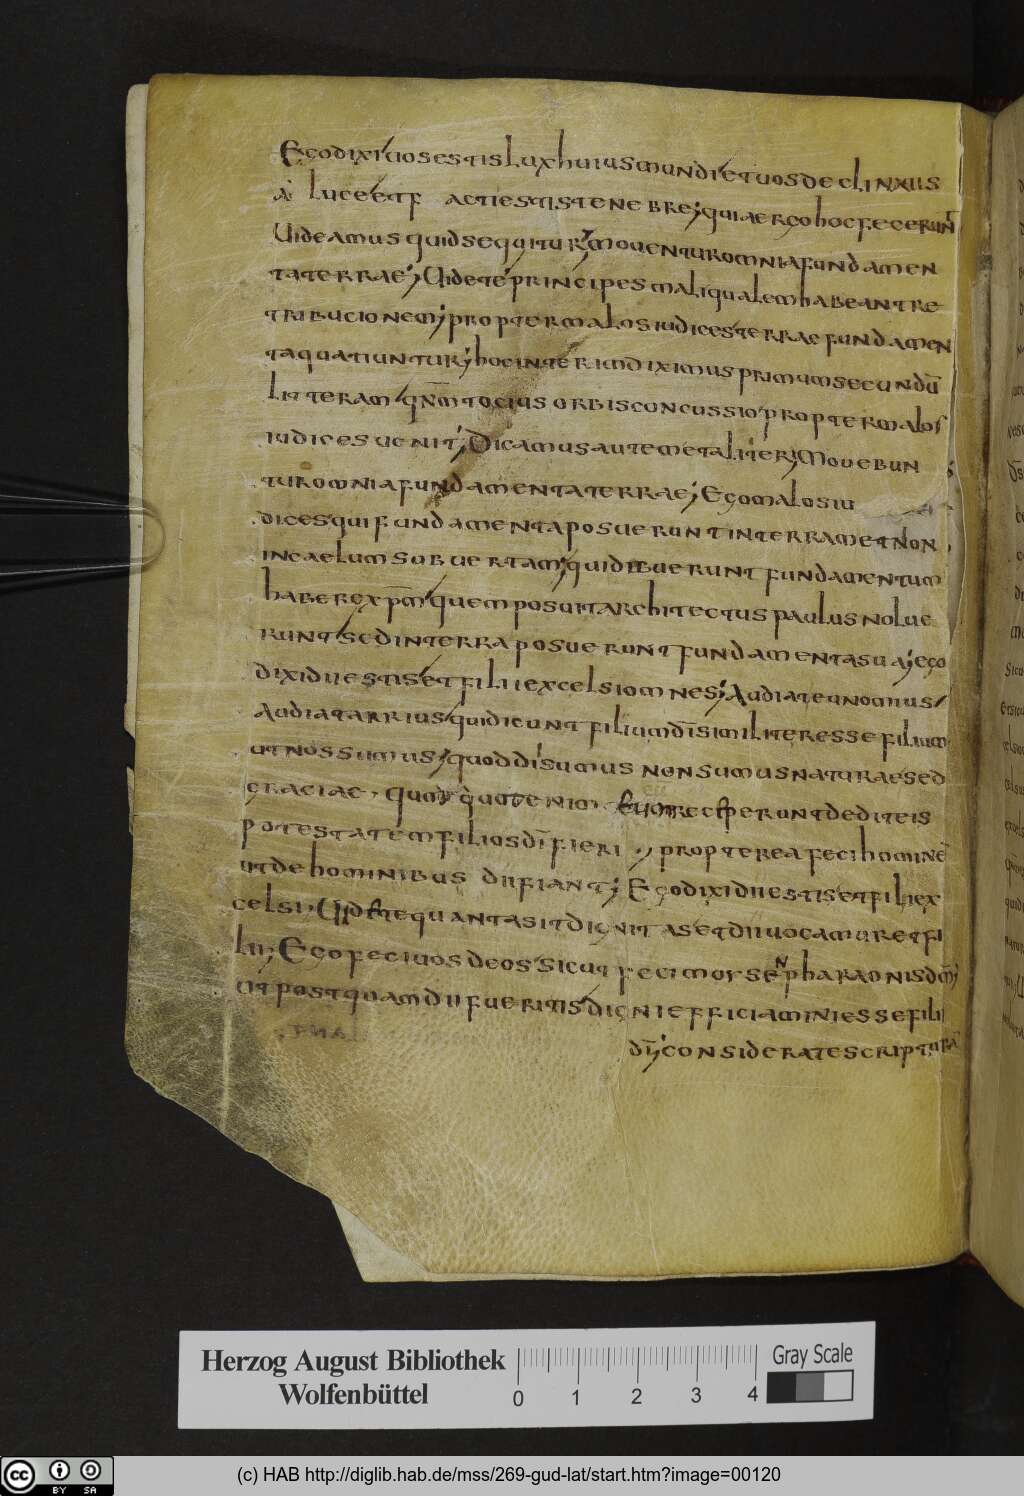 Ego dixi uos estis lux huius mundi et uos declinxiis
a luce et f acti estis tenebre; qui aergo hoc fecerunt
Uideamus quid sequitur; mouentur omnia fundamen
ta terrae; Uidete principes mali qualem habeant re
tribucionem; propter malos iudices terrae fundamen
ta quatiuntur; hoc interim diximus primum secundū
litteram qnm tocius orbis concussio propter malos
iudices uenit; Dicamus autem et aliter; Mouebun
tur omnia fundamenta terrae; Ego malos iu
dices qui fundamenta posuerunt in terram et non
in caelum subuertam; quid habuerunt fundamentum
habere xpm quem posuit architectus paulus nolue
runt sed in terra posuerunt fundamenta sua; ego
dixi dii estis et filii excelsi omnes; Audiat eunomius
Audiat arrius qui dicunt filium dī similiter esse filium
ut nos sumus; quod dii sumus non sumus natura sed
graciae. quod quotenim eum receperunt dedit eis
potestatem filios dī fieri; propterea feci hominē
ut de hominibus dii fiant; Ego dixi dii estis et filii ex
celsi; Uidete quanta sit dignitas et dii uocamur et fi
lii; Ego feci uos deos sicut feci moysen pharaonis dm;
ut postquam dii fueritis digni efficiamini esse filii
dī; considerate scripturā
Herzog August Bibliothek
Wolfenbüttel
0 1 2 3 4
Gray Scale
cc BY SA
(c) HAB http://diglib.hab.de/mss/269-gud-lat/start.htm?image=00120